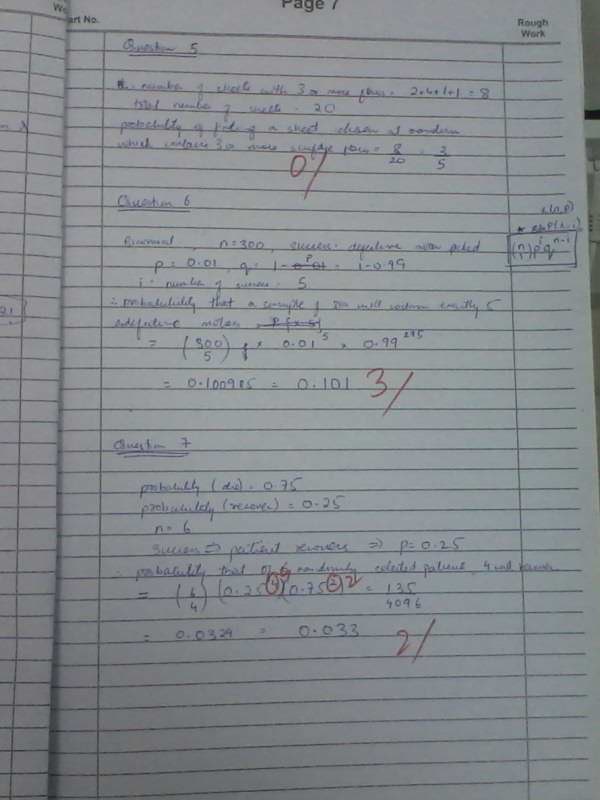 Page 7
Part No.
Rough Work
Question 5
number of sheets with 3 or more flaws = 2+4+1+1 = 8
total number of sheets = 20
probability of finding a sheet chosen at random
which contains 3 or more surface flaws = 8/20 = 2/5
0/
Question 6
Binomial, n=300, success = defective motor picked
p = 0.01, q = 1-p = 1-0.99
i = number of success = 5
∴ probability that a sample of 300 will contain exactly 5
defective motors = P{X=5}
= (300 5) × 0.01^5 × 0.99^295
= 0.100985 = 0.101 3/
(n i) p^i q^n-i
Question 7
probability (die) = 0.75
probability (recover) = 0.25
n = 6
success => patient recovers => p = 0.25
∴ probability that of 6 randomly selected patients, 4 will recover
= (6 4) (0.25)^4 (0.75)^2 = 135/4096
= 0.0329 = 0.033 2/